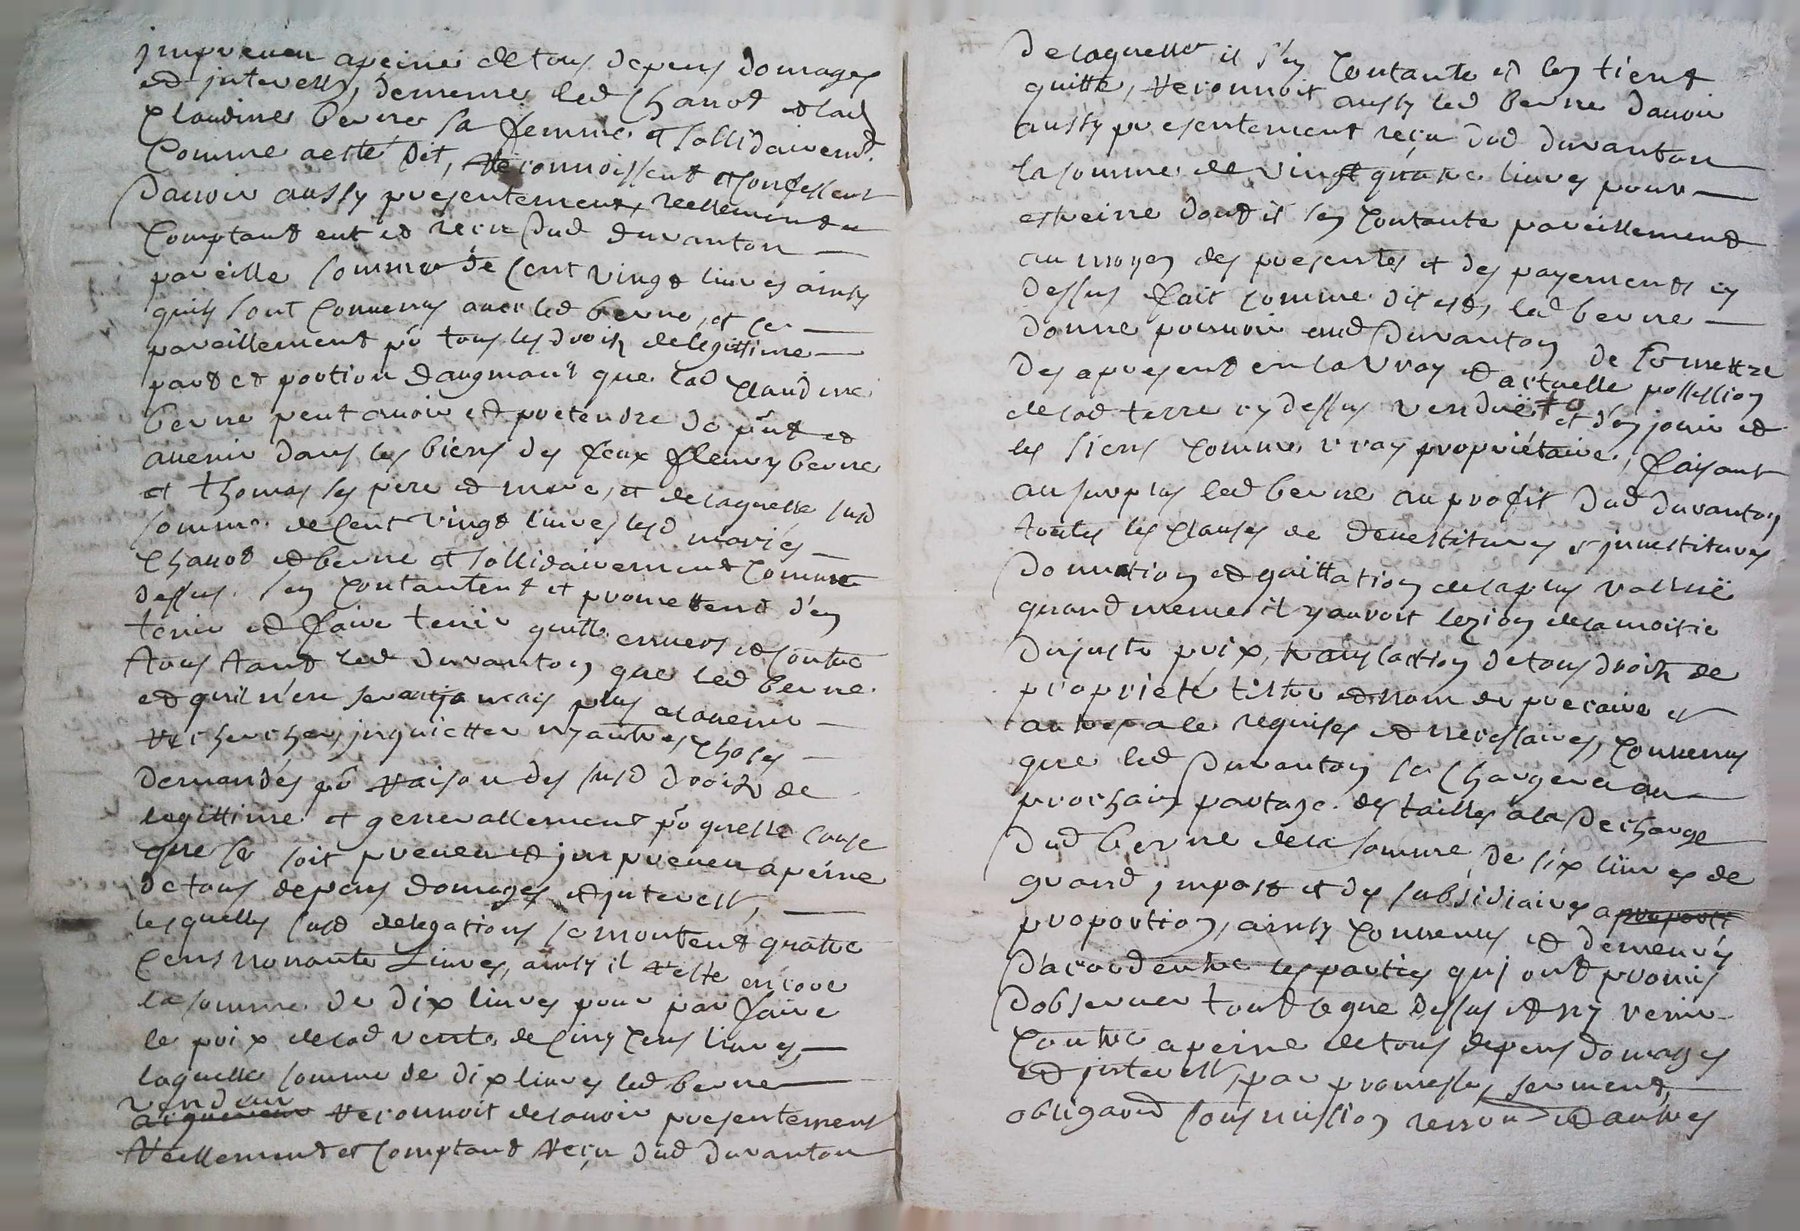 impreveu apeine de tous depens domages
et interests, dememe led Chanod et lad
Claudine berne sa femme et sollidairemt
Comme a esté dit, Reconnoissent et confessent
davoir aussy presentement, reellement et
Comptant eut et reçu dud duvanton
pareille somme de Cent vingt livres ainsy
quils sont convenus avec led berne, et ce
pareillement po tous les droits de legittime
part et portion daugmant que lad Claudine
berne peut avoir et pretendre de pnt et
avenir dans les biens des feux fleury berne
et thomas ses pere et mere, et de laquelle susd
somme de Cent vingt livres lesd mariés
Chanod et berne et sollidairement Comme
dessus sen Contantent et promettent d'en
tenir et faire tenir quitte envers et Contre
tous tant led duvanton que led berne
et quil n'en sera jamais plus alavenir
Recherchés, inquietter ny autres choses
demandés po Raison des susd droits de
legittime et generallement po quelle cause
que se soit preveu et impreveu apeine
de tous depens domages et interests,
lesquelles susd delegations se montent quatre
Cens nonante Livres, ainsy il Reste encore
la somme de dix livres pour parfaire
le prix delad vente de Cinq Cens livres,
laquelle somme de dix livres led berne
vendeur
acquereur Reconnoit de savoir presentement
Réellement et Comptant Reçu dud duvanton
delaquelle il s'en Contante et len tient
quitte, Reconnoit aussy led berne davoir
aussy presentement reçu dud duvanton
la somme de vingt quatre livres pour
estreine dont il sen Contante pareillement
au moyen des presentes et des payements cy
dessus fait comme dit est, led berne
donne pouvoir aud duvanton de se mettre
des apresent en la vray et actuelle possession
delad terre cy dessus vendüe et d'en jouir et
les siens comme vray propriétaire, faisant
au surplus led berne au profit dud duvanton
toutes les clauses de devestitures et investitures
donnation et quittation de la plus vallüe
quand meme il y auroit lezion de la moitié
du juste prix, translaction de tous droits de
proprieté tiltre et nom de precaire et
autres a le requises et necessaires, Convenus
que led duvanton se chargera au
prochain partage des tailles à la decharge
dud berne de la somme de six livres de
grand impost et des subsidiaires a proporti
proportion, ainsy convenus et demeurés
d'acord entre les parties qui ont promis
dobserver tout ce que dessus et ny venir
Contre apeine de tous depens domages
et interests, par promesses, serment,
obligaõn soumission renonõn et autres